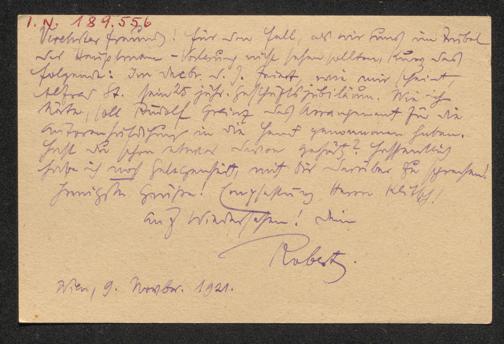 I.N. 189.556
Verehrter Freund! Für den Fall, als wir uns im Trubel
der Hauptmann-Vorlesung nicht sehen sollten, kurz das
folgende: Im Dezbr. d. J. feiert, wie mir scheint,
Alfred St. sein 25 jähr. Geschäftsjubiläum. Wie ich
höre, soll Rudolf Greinz das Arrangement für die
Autorenhuldigung in die Hand genommen haben.
Hast du schon etwas davon gehört? Hoffentlich
habe ich noch Gelegenheit, mit dir darüber zu sprechen!
Innigste Grüße! Empfehlung Herrn
Auf Wiedersehen! Dein
Robert
Wien, 9. Novbr. 1921.